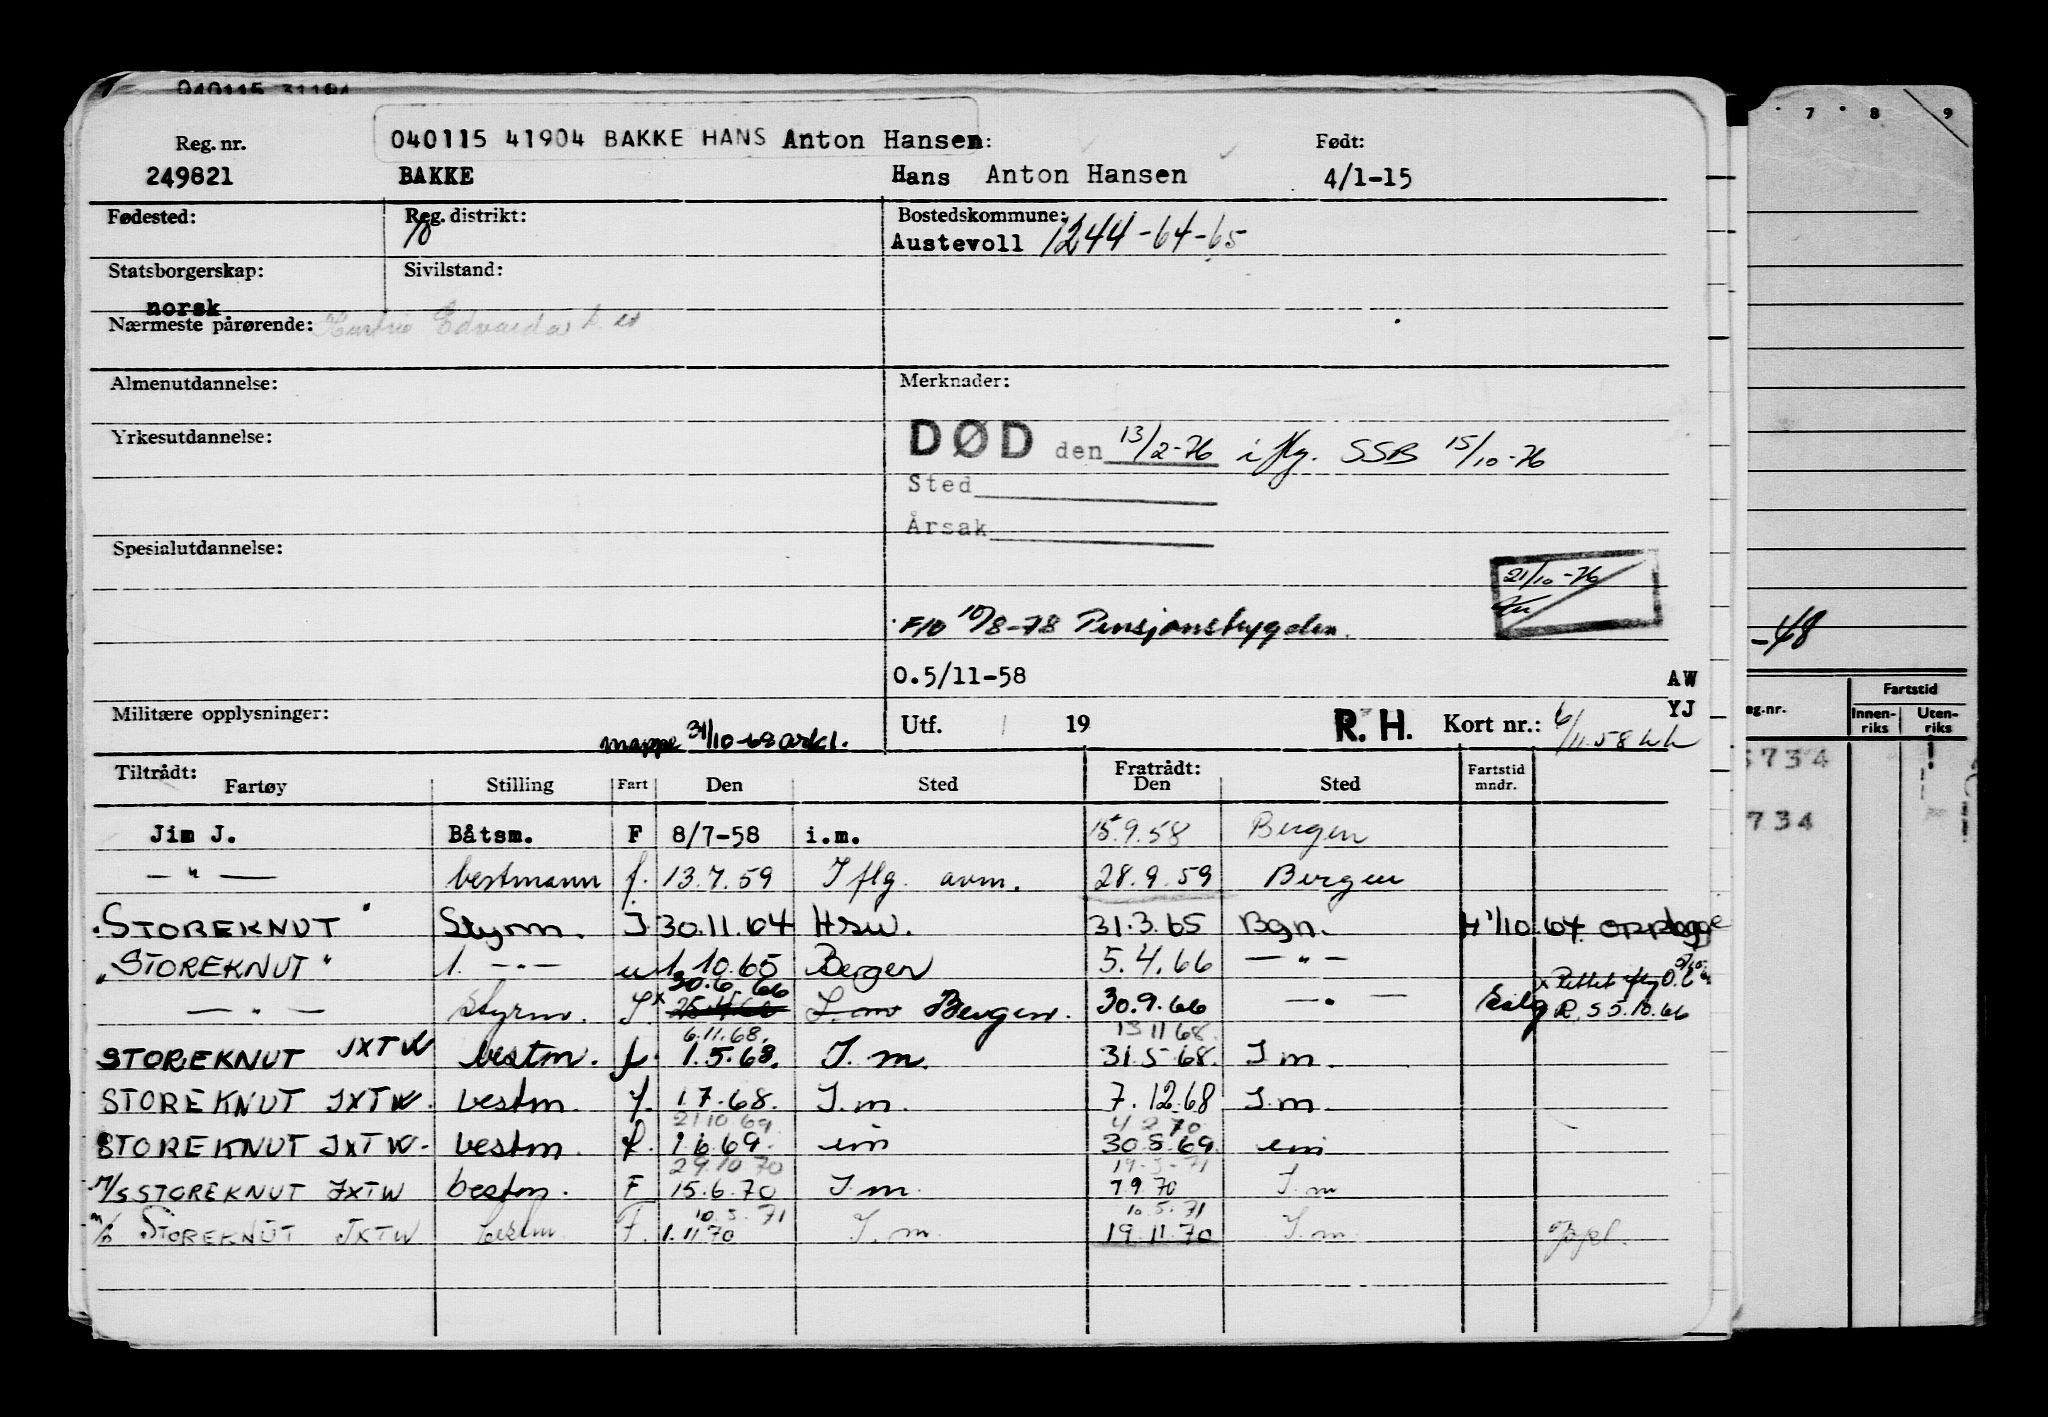 040115 31194
040115 41904 BAKKE HANS Anton Hansen:
Reg. nr. Født:
249821 BAKKE Hans Anton Hansen 4/1-15
Fødested: Reg. distrikt: Bostedskommune:
Austevoll 1244-64-65
Statsborgerskap: Sivilstand:
norsk
Nærmeste pårørende: Edvarda
Almenutdannelse: Merknader:
Yrkesutdannelse: DØD den 13/2-76 iflg. SSB 15/10-76
Sted
Årsak
Spesialutdannelse:
21/10-76
F10 10/8-78 Pensjonstrygden.
0.5/11-58 AW
Militære opplysninger: YJ
mappe 31/10-68 arkl. Utf. 19 R.H. Kort nr.: 6/11.58
Tiltrådt: Fratrådt:
Fartøy Stilling Fart Den Sted Den Sted Fartstid mndr.
Jim J. Båtsm. F 8/7-58 i.m. 15.9.58 Bergen
— " — bestmann f. 13.7.59 I flg. avm. 28.9.59 Bergen
"STOREKNUT" Styrm. I 30.11.64 Hsw. 31.3.65 Bgn. 1/10.64
"STOREKNUT" 1. — " — u 1.10.65 Bergen 5.4.66 — " —
30.6.66
— " — styrm. I. x 25.4.66 I.m Bergen. 30.9.66 — " — R.S 5.10.66
6.11.68. 13.11.68.
STOREKNUT JXTW bestm. f. 1.5.68. I.m. 31.5.68. I m.
STOREKNUT JXTW. bestm. f. 1.7.68. I.m. 7.12.68 I.m.
21.10.69. 4.2.70
STOREKNUT JXTW. bestm. f. 1.6.69. im 30.8.69. im
29.10.70 19-3-71
M/S STOREKNUT JXTW bestm. F 15.6.70 I.m. 7.9.70 I.m
10.5.71 10.5.71
STOREKNUT JXTW bestm F. 1.11.70 I.m. 19.11.70 I.m.
7 8 9
-48
Fartstid
g.nr. Innenriks Utenriks
734
734